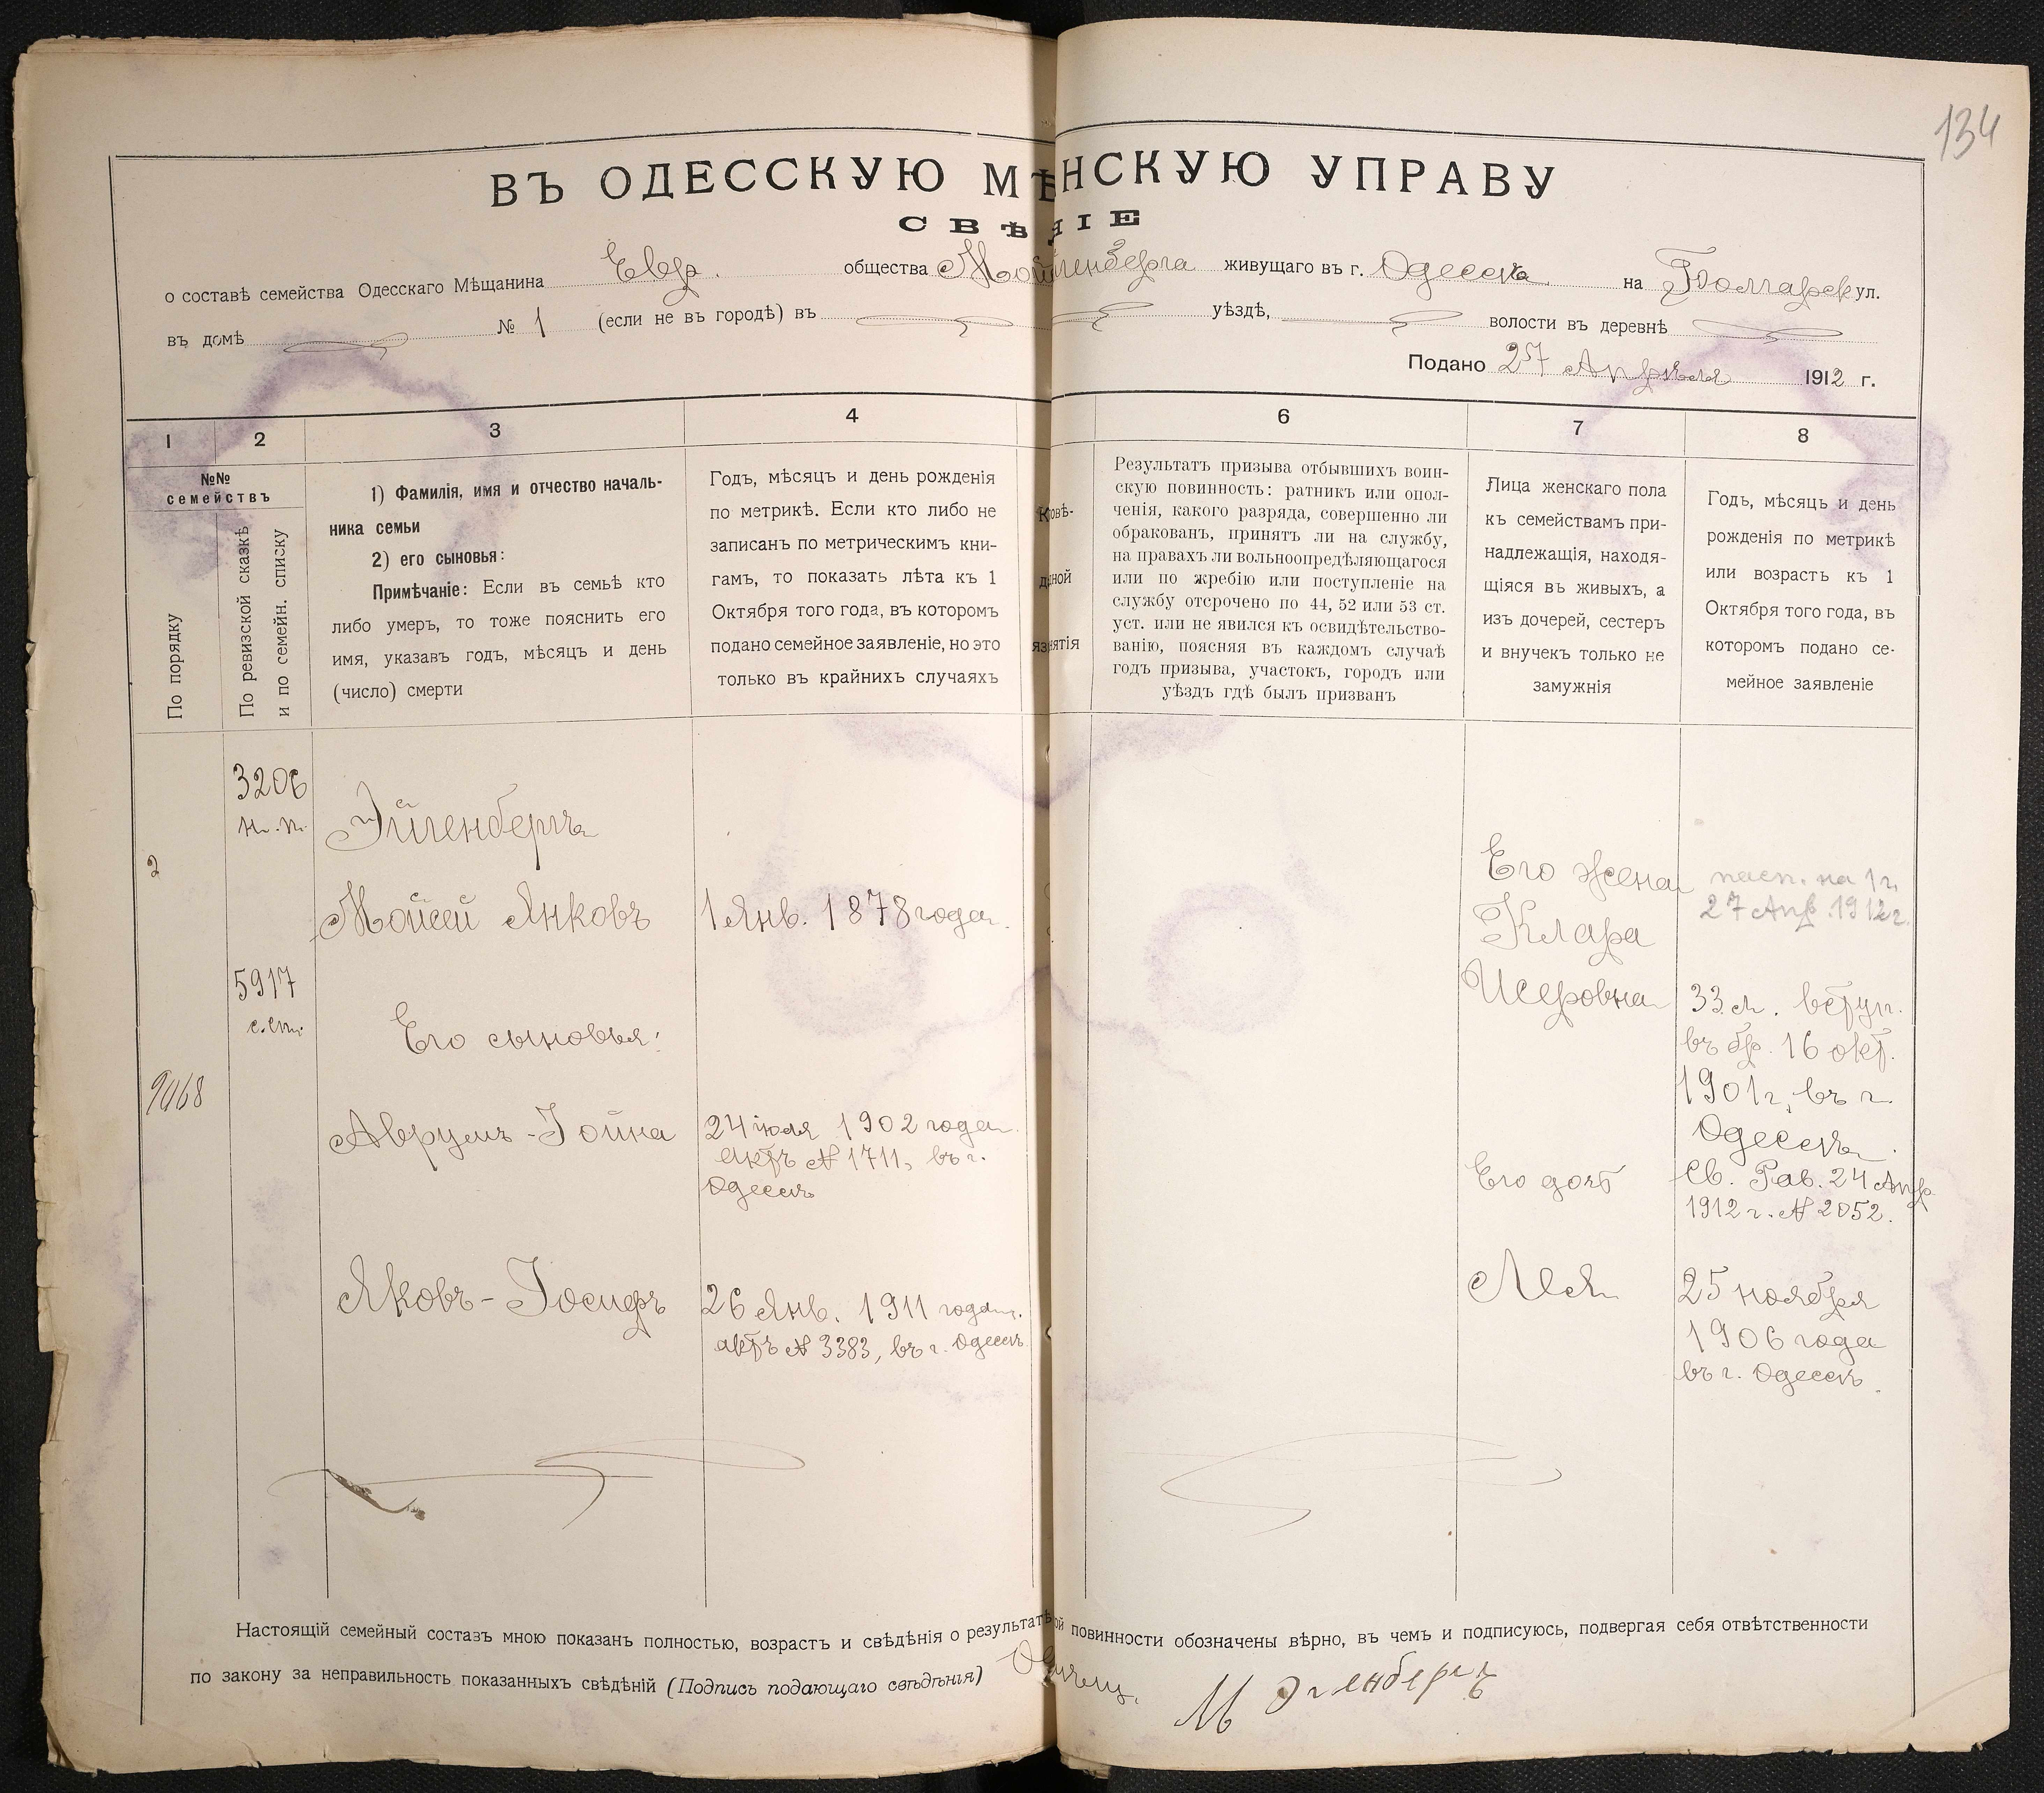 134
ВЪ ОДЕССКУЮ МѢНСКУЮ УПРАВУ
СВѢНІЕ
о составѣ семейства Одесскаго Мѣщанина Евр. общества живущаго въ г. Одесса на Болгарск ул.
въ домѣ № 1 (если не въ городѣ) въ уѣздѣ, волости въ деревнѣ
Подано 27 Апрѣля 1912 г.
1 2 3 4 6 7 8
№№
семействъ
По порядку
По ревизской сказкѣ
и по семейн. списку
1) Фамилія, имя и отчество началь-
ника семьи
2) его сыновья:
Примѣчаніе: Если въ семьѣ кто
либо умеръ, то тоже пояснить его
имя, указавъ годъ, мѣсяцъ и день
(число) смерти
Годъ, мѣсяцъ и день рожденія
по метрикѣ. Если кто либо не
записанъ по метрическимъ кни-
гамъ, то показать лѣта къ 1
Октября того года, въ которомъ
подано семейное заявленіе, но это
только въ крайнихъ случаяхъ
Результатъ призыва отбывшихъ воин-
скую повинность: ратникъ или опол-
ченія, какого разряда, совершенно ли
обракованъ, принятъ ли на службу,
на правахъ ли вольноопредѣляющагося
или по жребію или поступленіе на
службу отсрочено по 44, 52 или 53 ст.
уст. или не явился къ освидѣтельство-
ванію, поясняя въ каждомъ случаѣ
годъ призыва, участокъ, городъ или
уѣздъ гдѣ былъ призванъ
Лица женскаго пола
къ семействамъ при-
надлежащія, находя-
щіяся въ живыхъ, а
изъ дочерей, сестеръ
и внучекъ только не
замужнія
Годъ, мѣсяцъ и день
рожденія по метрикѣ
или возрастъ къ 1
Октября того года, въ
которомъ подано се-
мейное заявленіе
2
3206
н.п.
Эйгенбергъ
Мойсей Янковъ
1 Янв. 1878 года.
5917
с.сп.
Его сыновья:
9068
Аврумъ-Іойна
24 іюля 1902 года.
актъ № 1711, въ г.
Одессѣ
Яковъ-Іосифъ
26 Янв. 1911 года.
актъ № 3383, въ г. Одессѣ
Его жена
Клара
Исеровна
пасп. на 1 г.
27 Апр. 1912 г.
33 л. вступ.
въ бр. 16 окт.
1901 г. въ г.
Одессѣ.
Св. Рав. 24 Апр.
1912 г. № 2052.
Его дочь
Лея
25 ноября
1906 года
въ г. Одессѣ.
Настоящій семейный составъ мною показанъ полностью, возрастъ и свѣдѣнія о результатѣ ой повинности обозначены вѣрно, въ чемъ и подписуюсь, подвергая себя отвѣтственности
по закону за неправильность показанныхъ свѣдѣній (Подпись подающаго свѣдѣнія)
М Эгенбергъ